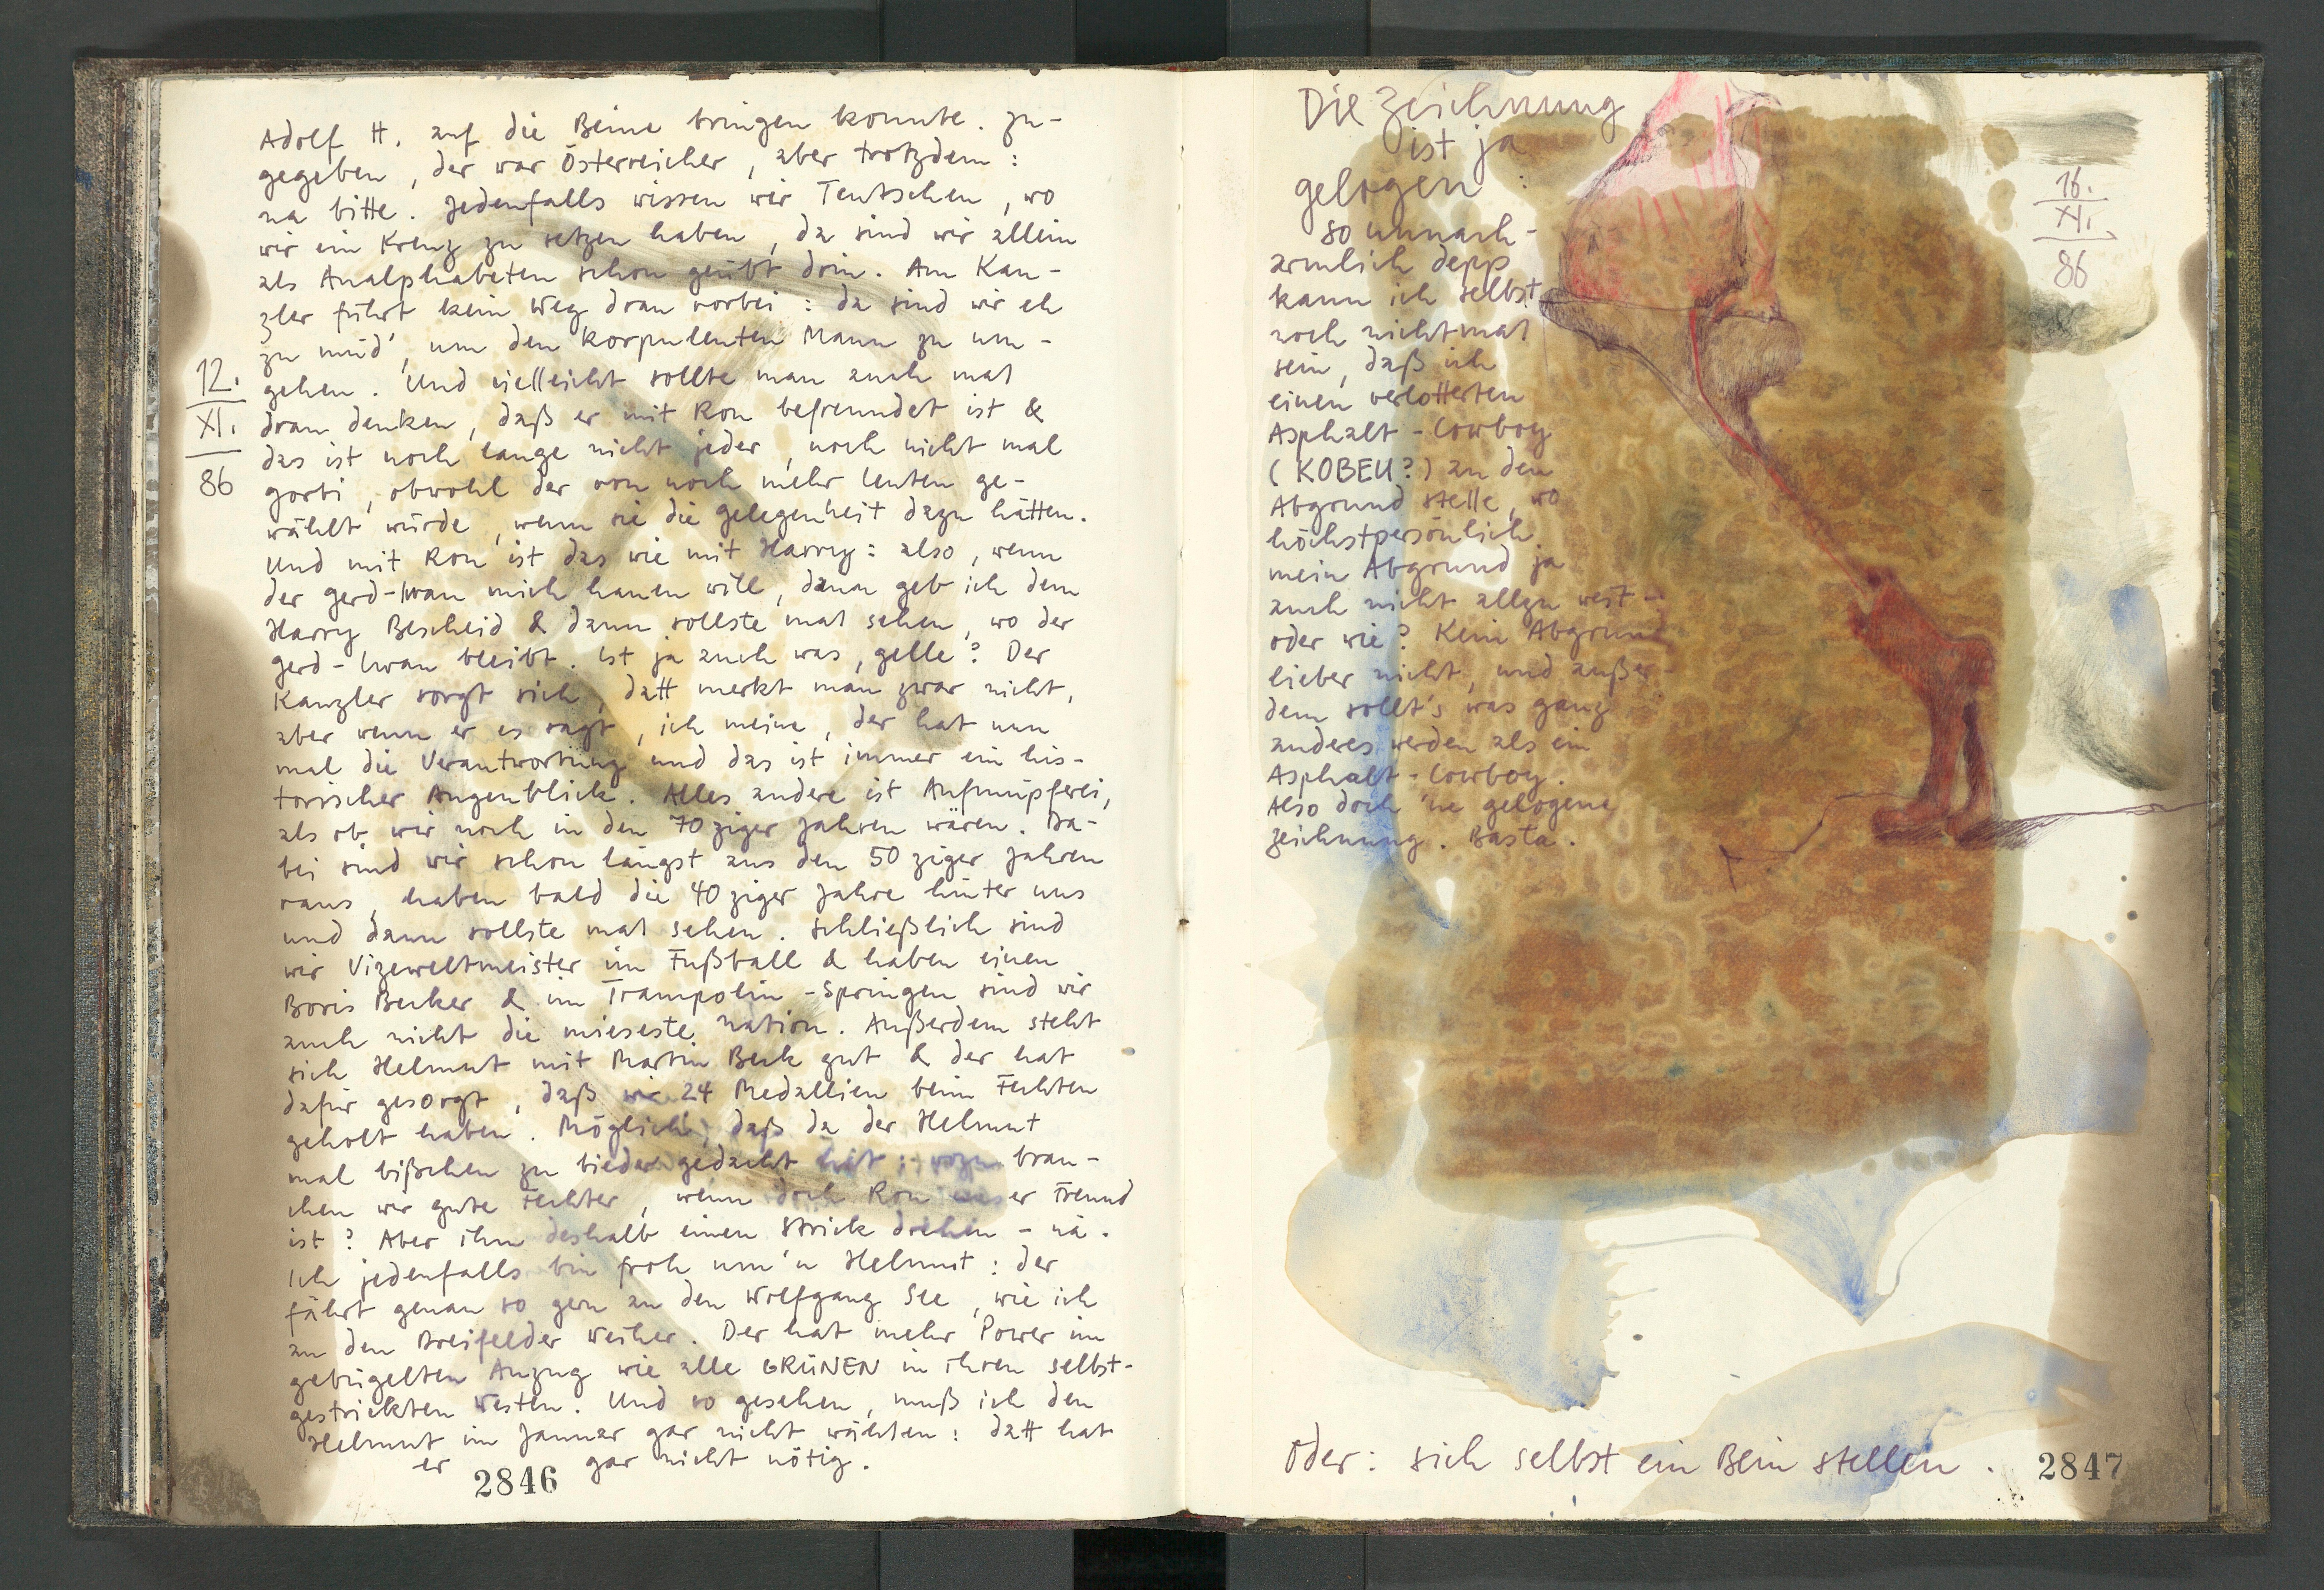 Adolf H. auf die Beine bringen konnte. Zu-
gegeben, der war Österreicher, aber trotzdem:
na bitte. Jedenfalls wissen wir Teutschen, wo
wir ein Kreuz zu setzen haben, da sind wir allein
als Analphabeten schon geübt drin. Am Kan-
zler führt kein Weg dran vorbei: da sind wir eh
zu müd', um den korpulenten Mann zu um-
gehen. Und vielleicht sollte man auch mal
dran denken, daß er mit Ron befreundet ist &
das ist noch lange nicht jeder, noch nicht mal
Gorbi, obwohl der von noch mehr Leuten ge-
wählt würde, wenn sie die Gelegenheit dazu hätten.
Und mit Ron ist das wie mit Harry: also, wenn
der Gerd-Iwan mich hauen will, dann geb ich dem
Harry Bescheid & dann sollste mal sehen, wo der
Gerd-Iwan bleibt. Ist ja auch was, gelle? Der
Kanzler sorgt sich, datt merkt man zwar nicht,
aber wenn er es sagt, ich meine, der hat nun
mal die Verantwortung und das ist immer ein his-
torischer Augenblick. Alles andere ist Aufmüpferei,
als ob wir noch in den 70ziger Jahren wären. Da-
bei sind wir schon längst aus den 50ziger Jahren
raus, haben bald die 40ziger Jahre hinter uns
und dann sollste mal sehen. Schließlich sind
wir Vizeweltmeister im Fußball & haben einen
Boris Becker & im Trampolin-Springen sind wir
auch nicht die mieseste Nation. Außerdem steht
sich Helmut mit Martin Beck gut & der hat
dafür gesorgt, daß wir 24 Medallien beim Fechten
geholt haben. Möglich, daß da der Helmut
mal bißchen zu bieder gedacht hat: wozu brau-
chen wir gute Fechter, wenn doch Ron unser Freund
ist? Aber ihm deshalb einen Strick drehen - nä.
Ich jedenfalls bin froh um'n Helmut: der
fährt genau so gern an den Wolfgang See, wie ich
an den Dreifelder Weiher. Der hat mehr Power im
gebügelten Anzug wie alle GRÜNEN in ihren selbst-
gestrickten Westen. Und so gesehen, muß ich den
Helmut im Januar gar nicht wählen: datt hat
er gar nicht nötig.
12.
XI.
86
2846
Die Zeichnung
ist ja
gelogen:
so unnach-
armlich depp
kann ich selbst
noch nichtmal
sein, daß ich
einen verlotterten
Asphalt-Cowboy
(KOBEU?) an den
Abgrund stelle, wo
höchstpersönlich
mein Abgrund ja
auch nicht allzu weit -
oder wie? Kein Abgrund
lieber nicht, und außer-
dem sollt's was ganz
anderes werden als ein
Asphalt-Cowboy.
Also doch 'ne gelogene
Zeichnung. Basta.
16.
XI.
86
Oder: sich selbst ein Bein stellen.
2847